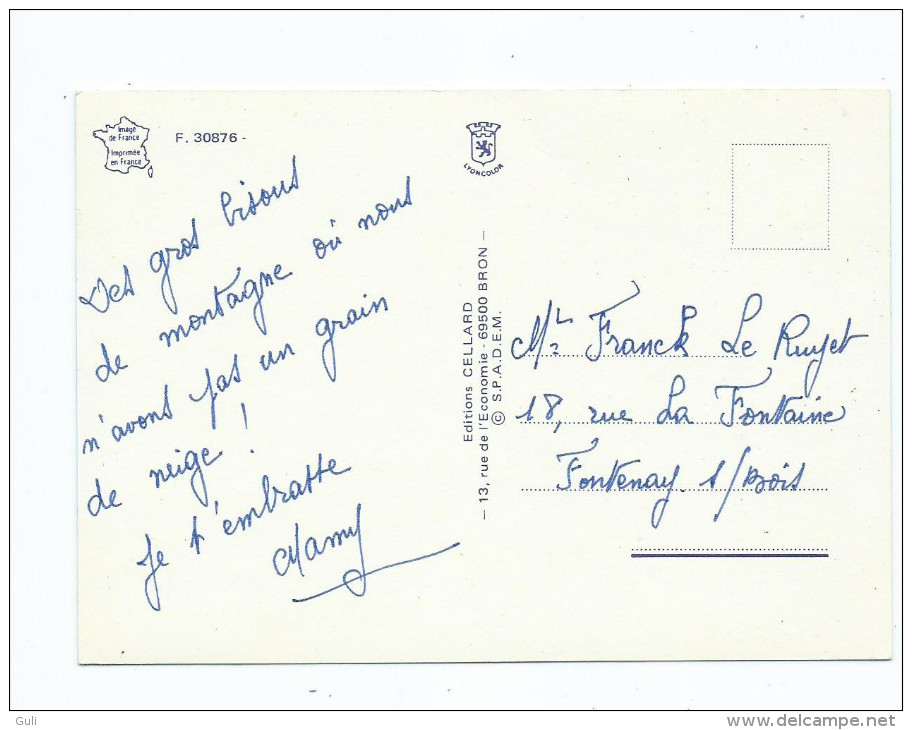 Image
de France
Imprimée
en France
F. 30876 -
LYONCOLOR
Des gros bisous
de montagne où nous
n'avons pas un grain
de neige !
Je t'embrasse
Mamy
Editions CELLARD
– 13, rue de l'Economie - 69500 BRON –
© S.P.A.D.E.M.
Mr Franck Le Ruyet
18, rue La Fontaine
Fontenay s/Bois
Guli
www.delcampe.net